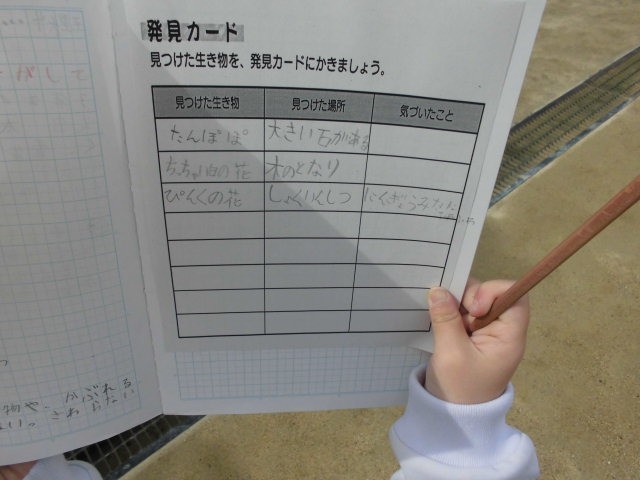 発見カード
見つけた生き物を、発見カードにかきましょう。
見つけた生き物 見つけた場所 気づいたこと
たんぽぽ 大きい石がある
ちっちゃい白の花 木のとなり
ぴんくの花 しょくいんしつ にんぎょうみたい
物や、かぶれる
さわらない